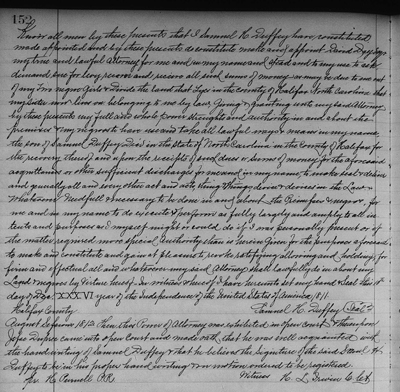 152
Know all men by these presents that I Samuel H. Duffey have constituted
made appointed and by these presents do constitute make and appoint David
my true and lawful Attorney for me and in my name and to my use to ask
demand sue for levy recover and receive all such sums of money as may be due to me out
of any two negro Girls & beside the Land that lays in the County of Halifax North Carolina that
my Sister now lives on belonging to me by Law Giving & granting unto my said Attorney
by these presents my full and whole power strength and authority in and about the
premises & my negroes to have use and take all lawful ways & means in my name
the son of Samuel Duffey Died in the State of North Carolina in the County of Halifax for
the recovery thereof and upon the receipt of such dues or sums of money for the aforesaid
acquittances or other sufficient discharges for me and in my name to make seal & deliver
and generally all and every other act and acts thing things device & devices in the Law
whatsoever needfull & necessary to be done in and about the Premises & negroes for
me and in my name to do execute & perform as fully largely and amply to all in
tents and purposes as I myself might or could do if I was personally present or if
the matter required more special authority than is herein given for the purposes aforesaid
to make and constitute and again at pleasure to revoke ratifying allowing and holding for
firm and effectual all and whatsoever my said Attorney shall lawfully do in about my
Land & negroes by virtue hereof. In witness whereof I have hereunto set my hand & seal this
day of XXXVI year of the Independence of the United States of America 1811.
Halifax County Samuel H. Duffey (Seal)
August Session 1812. Then this Power of Attorney was exhibited in open Court & thereupon
Jesse came into open Court and made oath that he was well acquainted with
the handwriting of Samuel Duffey & that he believes the Signature of the said Samuel H.
Duffey to be in his proper handwriting & on motion ordered to be registered
Witness H. L. Irwine C. Ct.